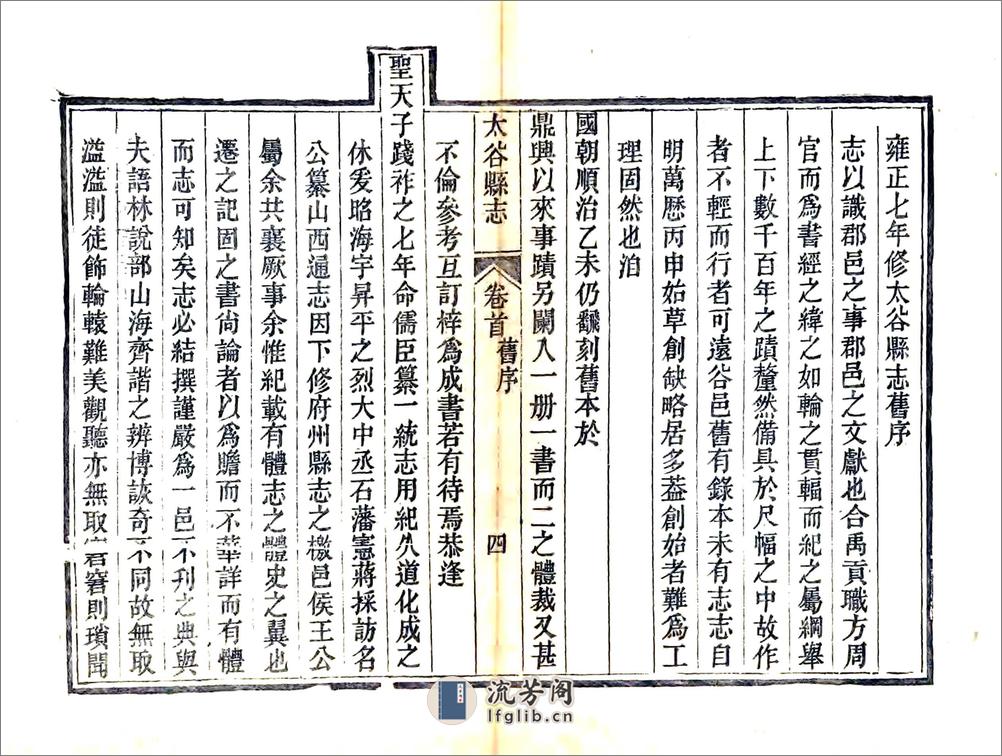 雍正七年修太谷縣志舊序
志以識郡邑之事郡邑之文獻也合禹貢職方周
官而爲書經之緯之如輪之貫輻而紀之屬綱舉
上下數千百年之蹟釐然備具於尺幅之中故作
者不輕而行者可遠谷邑舊有錄本未有志志自
明萬曆丙申始草創缺略居多葢創始者難爲工
理固然也洎
國朝順治乙未仍飜刻舊本於
鼎興以來事蹟另闌入一册一書而二之體裁又甚
太谷縣志
卷首
舊序
四
不倫參考互訂梓爲成書若有待焉恭逢
聖天子踐祚之七年命儒臣纂一統志用紀久道化成之
休爰昭海宇昇平之烈大中丞石藩憲蔣採訪名
公纂山西通志因下修府州縣志之檄邑侯王公
屬余共襄厥事余惟紀載有體志之體史之翼也
遷之記固之書尚論者以爲贍而不華詳而有體
而志可知矣志必結撰謹嚴爲一邑不刊之典與
夫語林說部山海齊諧之辨博詼奇不同故無取
濫濫則徒飾輪轅難美觀聽亦無取窘窘則瑣聞
流芳阁
lfglib.cn